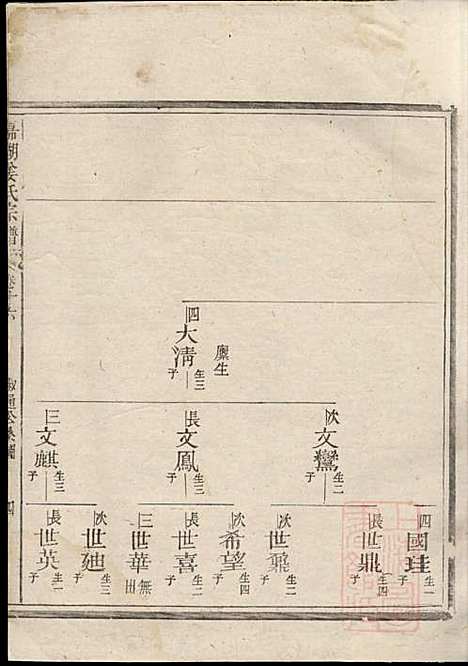 四 大清 生三子
廩生
次 文鸞 生二子
長 文鳳 生三子
三 文麒 生三子
四 國珪 生一子
長 世鼎 生四子
次 世鼐 生二子
次 希望 生四子
長 世喜 生二子
三 世華 無
次 世廸 生三子
長 世英 生一子
湖姜氏宗譜
四